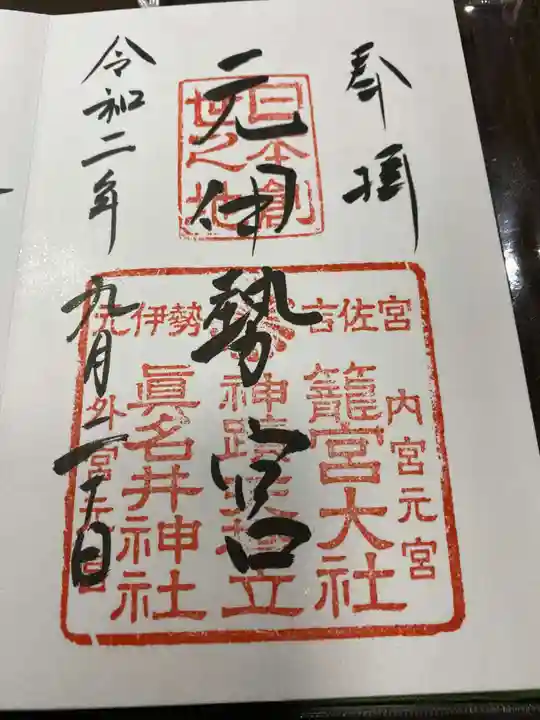 奉拝
日本創
世之地
元伊勢宮
令和二年
九月二十日
宮佐吉
伊勢元
内宮元宮
籠宮大社
神
立
眞名井神社
外宮元宮